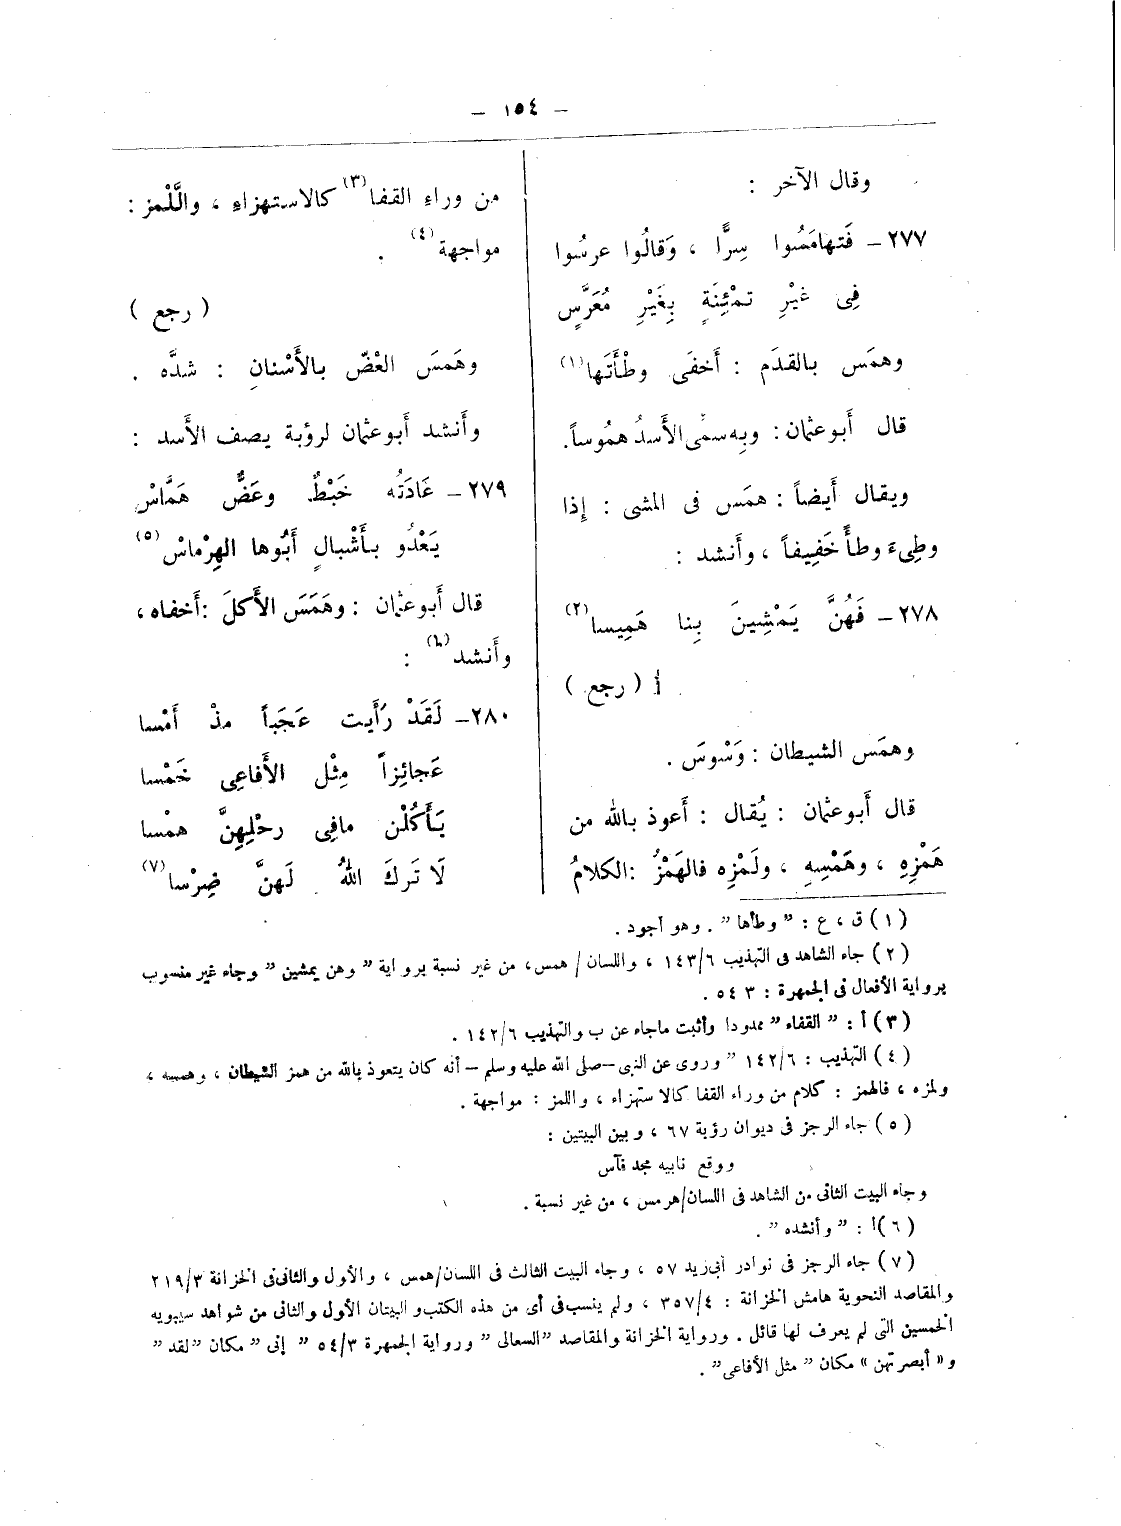 — ١٥٤ —
وقال الآخر :
٢٧٧ — فَتهامَسُوا سِرًّا ، وَقالُوا عرسُوا
فِى غيْرِ تمْئِنَةٍ بِغَيْرِ مُعَرَّسٍ
وهمَس بالقدَم : أَخفَى وطْأَتَها (١)
قال أَبوعثمان : وبِه سمى الأَسدُ همُوساً.
ويقال أَيضاً : همَس فى المشى : إِذا
وطِىءَ وطأً خَفِيفاً ، وأَنشد :
٢٧٨ — فَهُنَّ يَمْشِينَ بِنا هَمِيسا (٢)
أ ( رجع )
وهمَس الشيطان : وَسْوسَ .
قال أَبوعثمان : يُقال : أَعوذ بالله من
هَمْزِهِ ، وهَمْسِهِ ، ولَمْزِه فالهَمْزُ : الكلامُ
من وراءِ القفا (٣) كالاستهزاءِ ، واللَّمْز :
مواجهة (٤) .
( رجع )
وهَمَسَ العْضّ بالأَسْنانِ : شدَّه .
وأَنشد أَبوعثمان لرؤبة يصف الأَسد :
٢٧٩ — عَادَتُه خَبْطٌ وعَضٌّ هَمَّاسْ
يَعْدُو بأَشْبالٍ أَبُوها الهِرْماسْ (٥)
قال أَبوعثمان : وهَمَسَ الأَكلَ : أَخفاه ،
وأَنشد (٦) :
٢٨٠ — لَقَدْ رَأَيت عَجَباً مذْ أَمْسا
عَجائِزاً مِثْل الأَفاعِى خَمْسا
يَأْكُلْن مافِى رحْلِهِنَّ همْسا
لَا تَركَ اللهُ لَهنَّ ضِرْسا (٧)
(١) ق ، ع : ” وطأها “ . وهو أجود .
(٢) جاء الشاهد فى التهذيب ١٤٣/٦ ، واللسان / همس ، من غير نسبة برواية ” وهن يمشين “ وجاء غير منسوب
برواية الأفعال فى الجمهرة : ٣ ٥٤ .
(٣) أ : ” القفاء “ ممدودا وأثبت ماجاء عن ب والتهذيب ١٤٢/٦ .
(٤) التهذيب : ١٤٢/٦ ” وروى عن النبى — صلى الله عليه وسلم — أنه كان يتعوذ بالله من همز الشيطان ، وهمسه ،
ولمزه ، فالهمز : كلام من وراء القفا كالاستهزاء ، واللمز : مواجهة .
(٥) جاء الرجز فى ديوان رؤبة ٦٧ ، وبين البيتين :
ووقع نابيه مجد فآس
وجاء البيت الثانى من الشاهد فى اللسان/هرمس ، من غير نسبة .
(٦) أ : ” وأنشده “ .
(٧) جاء الرجز فى نوادر أبى زيد ٥٧ ، وجاء البيت الثالث فى اللسان/همس ، والأول والثانى فى الخزانة ٢١٩/٣
والمقاصد النحوية هامش الخزانة : ٣٥٧/٤ ، ولم ينسب فى أى من هذه الكتب و البيتان الأول والثانى من شواهد سيبويه
الخمسين التى لم يعرف لها قائل . ورواية الخزانة والمقاصد ”السعالى“ ورواية الجمهرة ٥٤/٣ ” إنى “ مكان ” لقد “
و« أبصرتهن » مكان ” مثل الأفاعى“ .